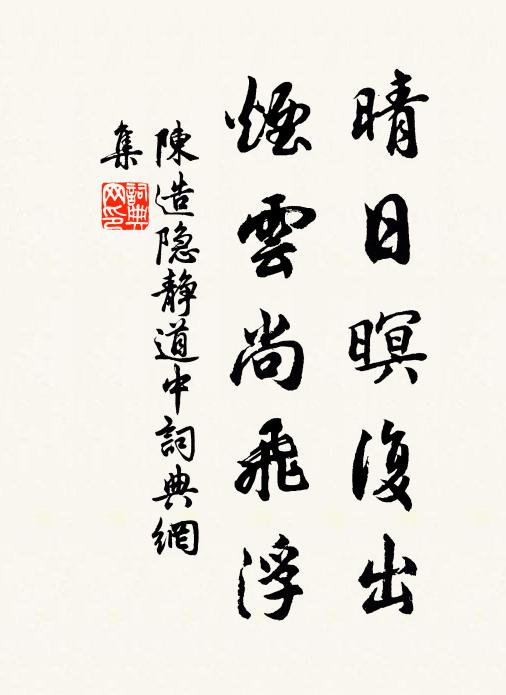 晴日暝復出
煙雲尚飛浮
陳造隐静道中詞典網
集
詞典
网印